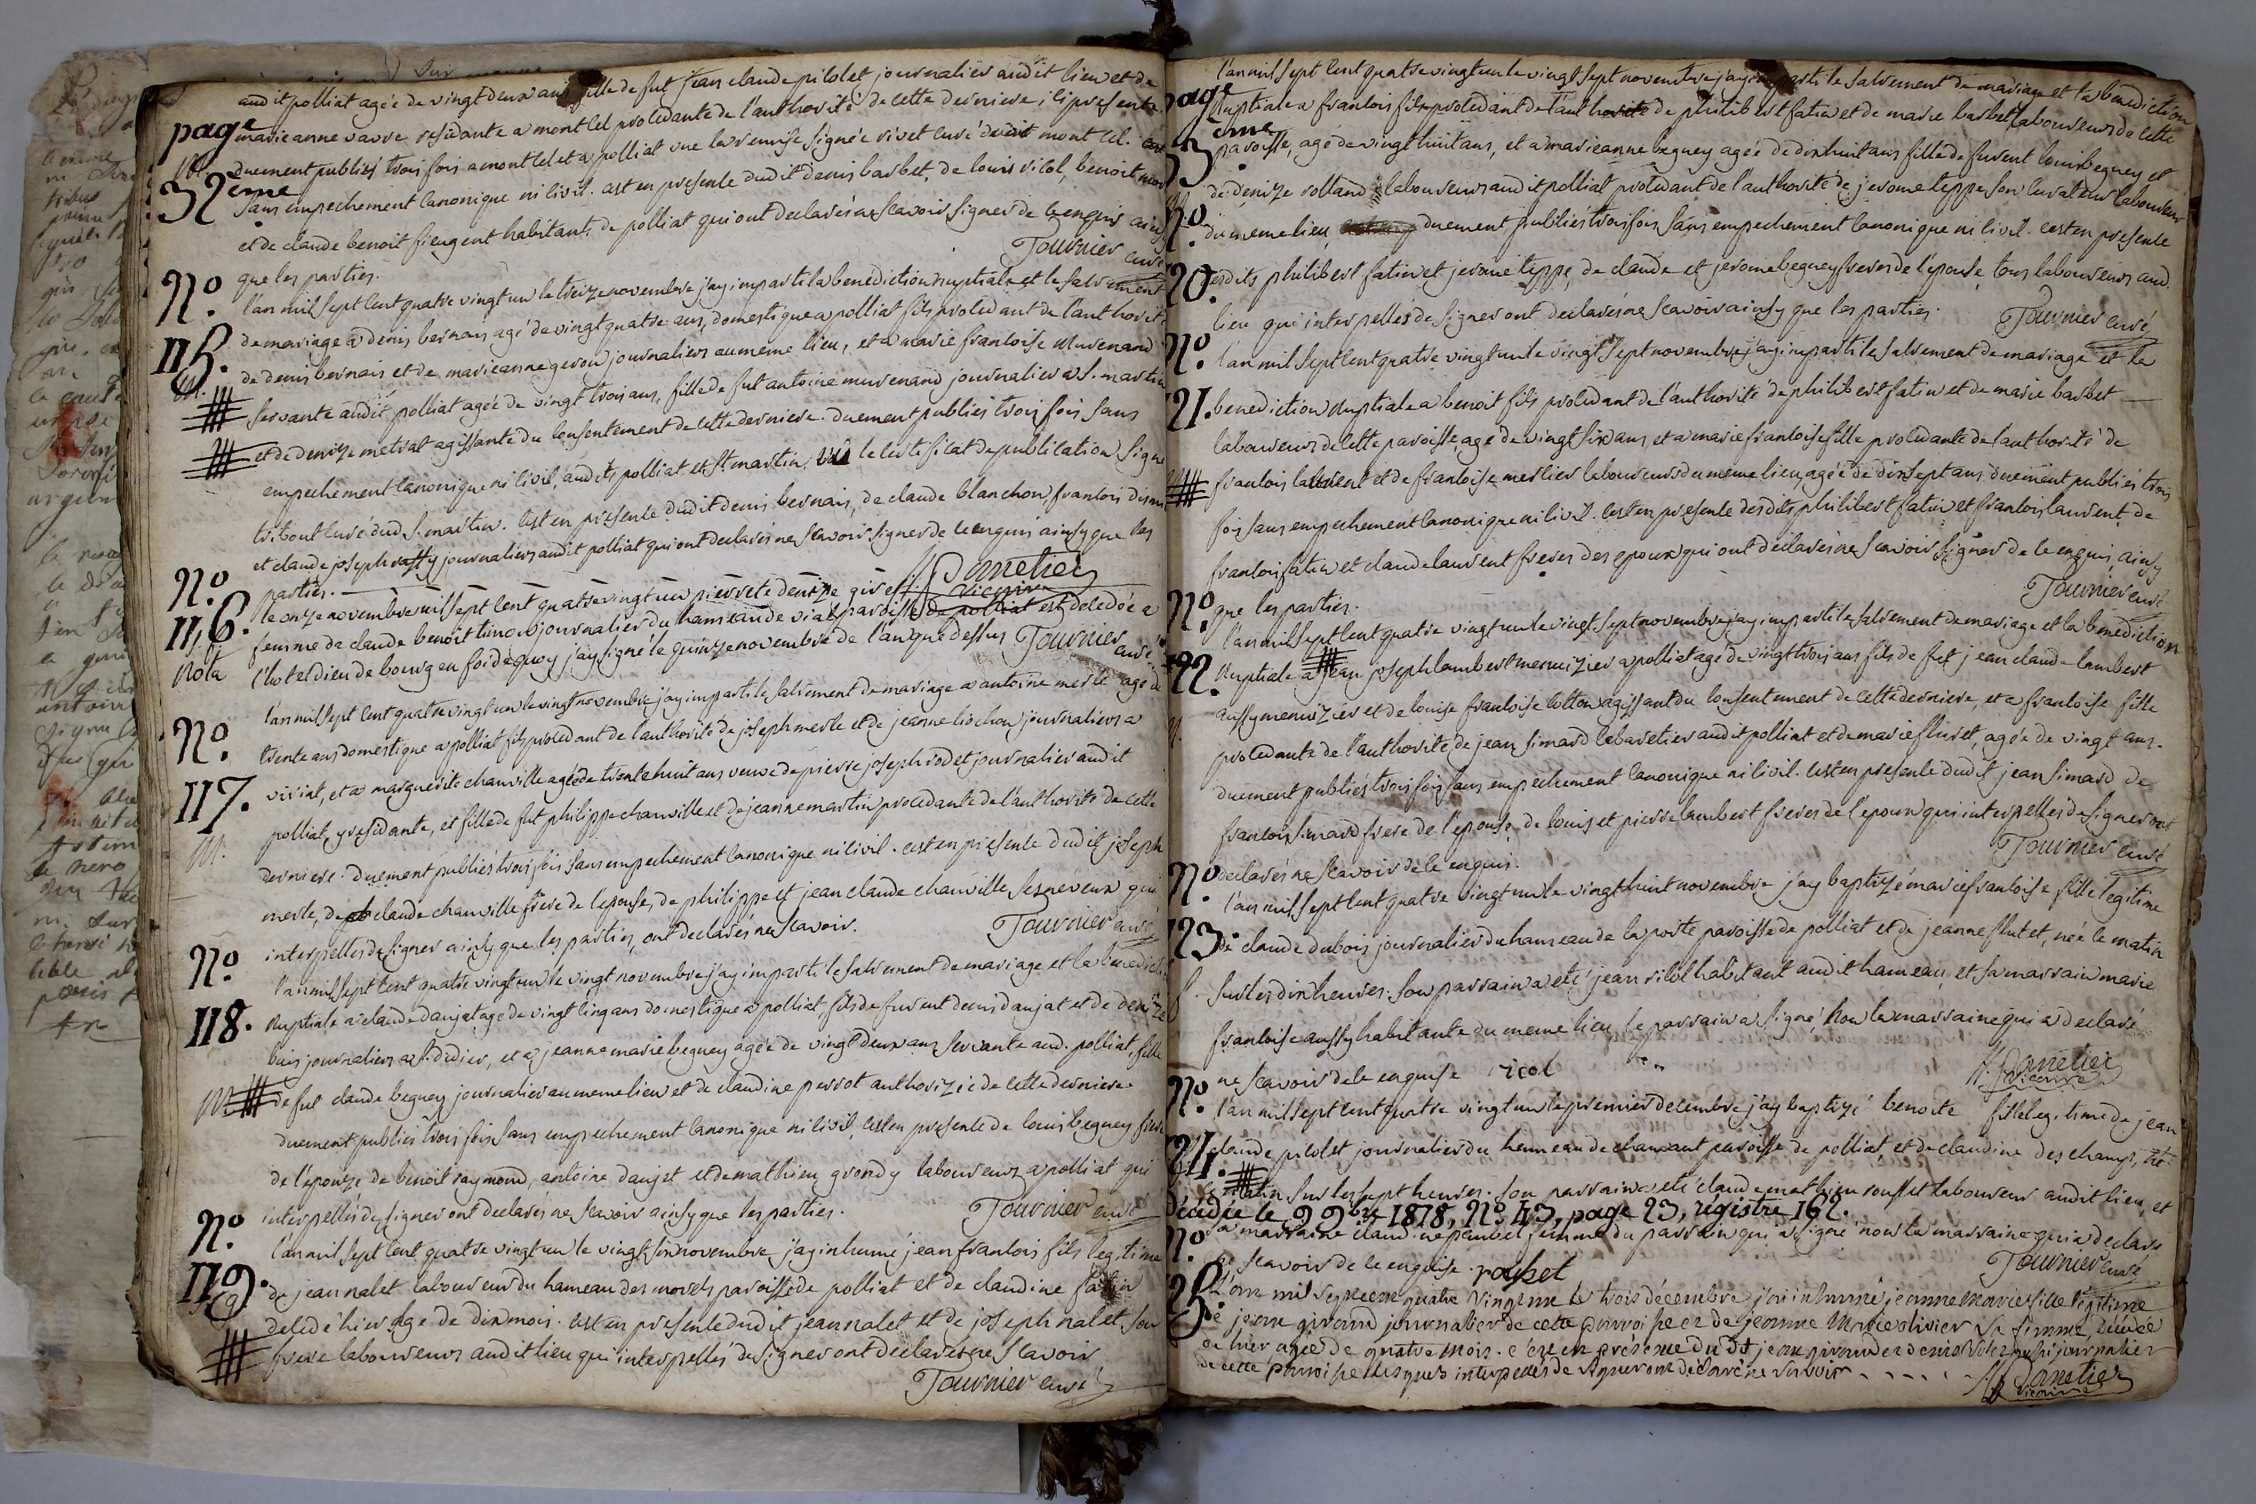 page
32ème
audit polliat agée de vingt deux ans fille de fut jean claude pilolet journalier audit lieu et de
marieanne vavre residante a montcel procedante de l'authorité de cette derniere ici presente
duement publiés trois fois a montcel et a polliat vue la remise signée rivet curé dudit montcel.
sans empechement canonique ni civil. c'est en presence dudit denis barbet, de louis vicol, benoit
et de claude benoit fieugent habitants de polliat qui ont declarés ne scavoir signer de ce enquis ainsy
que les parties. Tournier curé
No.
115.
l'an mil sept cent quatre vingt un le treize novembre j'ay imparti la benediction nuptiale et le sacrement
de mariage a denis bernais agé de vingt quatre ans, domestique a polliat fils procedant de l'authorité
de denis bernais et de marieanne geron journaliers au meme lieu, et a marie francoise murenand
servante audit polliat agée de vingt trois ans, fille de fut antoine murenand journalier a S. martin
et de denize metrat agissante du consentement de cette derniere. duement publiés trois fois sans
empechement canonique ni civil, audits polliat et St martin, vû le certificat de publication signé
tribout curé dud S. martin. c'est en presence dudit denis bernais, de claude blanchon, francois
et claude joseph journaliers audit polliat qui ont declarés ne scavoir signer de ce enquis ainsy que les
parties. Panetier vicaire
No.
116.
Nota
le onze novembre mil sept cent quatre vingt un pierrete denize
femme de claude benoit journalier du hameau de vial paroisse de polliat est decedée a
l'hotel dieu de bourg en foi de quoy j'ay signé le quinze novembre de l'an que dessus Tournier curé
No.
117.
l'an mil sept cent quatre vingt un le vingt novembre j'ay imparti le sacrement de mariage a antoine merle agé de
trente ans domestique a polliat fils procedant de l'authorité de joseph merle et de jeanne cochon journaliers a
viriat, et a marguerite chanville agée de trente huit ans veuve de pierre joseph rodet journalier audit
polliat, y residante, et fille de fut philippe chanville et de jeanne martin procedante de l'authorité de cette
derniere. duement publiés trois fois sans empechement canonique ni civil. c'est en presence dudit joseph
merle, de claude chanville frere de l'epouse, de philippe et jean claude chanville ses neveux qui
interpellés de signer ainsy que les parties, ont declarés ne scavoir. Tournier curé
No.
118.
l'an mil sept cent quatre vingt un le vingt novembre j'ay imparti le sacrement de mariage et la benediction
nuptiale a claude danjat agé de vingt cinq ans domestique a polliat, fils de furent denis danjat et de denize
buis journaliers a S. didier, et a jeanne marie beguey agée de vingt deux ans servante aud. polliat, fille
de fut claude beguey journalier au meme lieu et de claudine perrot authorizée de cette derniere.
duement publiés trois fois sans empechement canonique ni civil, c'est en presence de louis beguey frere
de l'epouze de benoit raymond, antoine danjat et de mathieu grondy laboureurs a polliat qui
interpellés de signer ont declarés ne scavoir ainsy que les parties. Tournier curé
No.
119.
l'an mil sept cent quatre vingt un le vingt six novembre j'ay inhumé jean francois fils legitime
de jean nalet laboureur du hameau des morels paroisse de polliat et de claudine fatin
decédé hier agé de dix mois. c'est en presence dudit jean nalet et de joseph nalet son
frere laboureurs audit lieu qui interpellés de signer ont declarés ne scavoir
Tournier curé
page
33ème
l'an mil sept cent quatre vingt un le vingt sept novembre j'ay imparti le sacrement de mariage et la benediction
nuptiale a francois fils procedant de l'authorité de philibert fatin et de marie barbet laboureurs de cette
paroisse, agé de vingt huit ans, et a marieanne beguey agée de dix huit ans fille de furent louis beguey et
de denize rolland laboureurs audit polliat procedant de l'authorité de jerome teppe son curateur laboureur
No.
120.
du meme lieu, duement publiés trois fois sans empechement canonique ni civil. c'est en presence
desdits philibert fatin et jerome teppe, de claude et jerome beguey freres de l'epouse, tous laboureurs aud.
lieu qui interpellés de signer ont declarés ne scavoir ainsy que les parties. Tournier curé
No.
121.
l'an mil sept cent quatre vingt un le vingt sept novembre j'ay imparti le sacrement de mariage et la
benediction nuptiale a benoit fils procedant de l'authorité de philibert fatin et de marie barbet
laboureurs de cette paroisse, agé de vingt six ans, et a marie francoise fille procedante de l'authorité de
francois laurent et de francoise merlier laboureurs du meme lieu, agée de dix sept ans. duement publiés trois
fois sans empechement canonique ni civil. c'est en presence desdits philibert fatin et francois laurent, de
francois fatin et claude laurent freres des epoux qui ont declarés ne scavoir signer de ce enquis, ainsy
que les parties. Tournier curé
No.
122.
l'an mil sept cent quatre vingt un le vingt sept novembre j'ay imparti le sacrement de mariage et la benediction
nuptiale a jean joseph lambert menuizier a polliat agé de vingt trois ans fils de fut jean claude lambert
aussy menuizier et de louise francoise cotton agissant du consentement de cette derniere, et a francoise fille
procedante de l'authorité de jean simard cabaretier audit polliat et de marie fluret, agée de vingt ans.
duement publiés trois fois sans empechement canonique ni civil. c'est en presence dudit jean simard de
francois simard frere de l'epouse, de louis et pierre lambert freres de l'epoux qui interpellés de signer ont
declarés ne scavoir de ce enquis. Tournier curé
No.
123.
l'an mil sept cent quatre vingt un le vingt huit novembre j'ay baptizé marie francoise fille legitime
de claude dubois journalier du hameau de la poste paroisse de polliat et de jeanne flutet, née le matin
sur les dix heures. son parrain a eté jean vicol habitant audit hameau, et sa marraine marie
francoise aussy habitante du meme lieu le parrain a signé, non la marraine qui a declaré
ne scavoir de ce enquise vicol Panetier vicaire
No.
124.
l'an mil sept cent quatre vingt un le premier decembre j'ay baptizé benoite fille legitime de jean
claude pilolet journalier du hameau de chanvant paroisse de polliat, et de claudine deschamps, née
matin sur les sept heures. son parrain a eté claude mathieu rousset laboureur audit lieu, et
décédée le 9 9bre 1878, No. 43, page 23, régistre 162.
sa marraine claudine femme du parrain qui a signé non la marraine qui a declaré
ne scavoir de ce enquise. rousset Tournier curé
No.
125.
L'an mil sept cent quatre vingt un le trois décembre j'ai inhumé jeanne marie fille légitime
de jean giraud journalier de cette parroisse et de jeanne Marie olivier sa femme, décédée
de hier agée de quatre mois. c'est en présence dudit jean giraud et denis aussi journalier
de cette parroisse lesquels interpellés de signer ont déclaré ne savoir Panetier vicaire